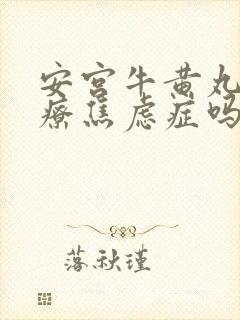 安宫牛黄丸
疗焦虑症吗
落秋瑾